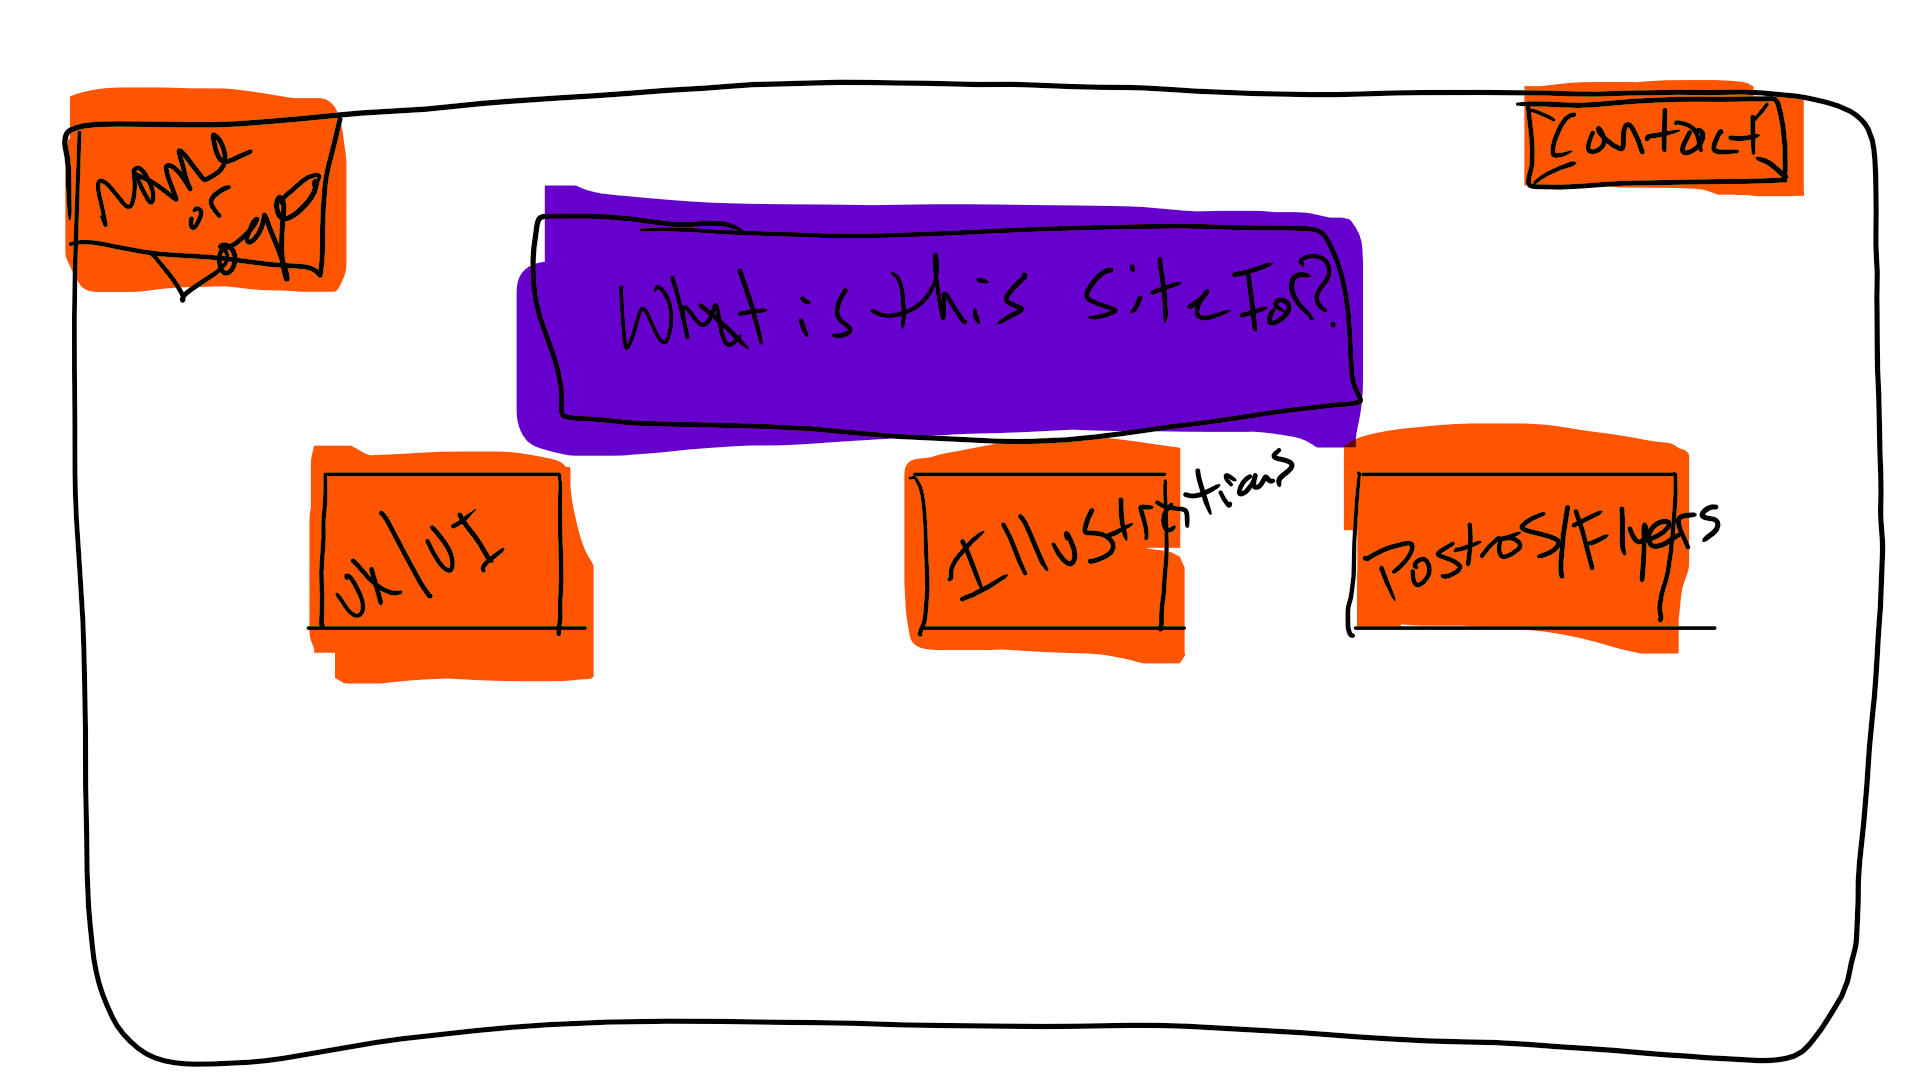 Name
or
Logo
Contact
What is this site For?
UX/UI
Illustrations
Postros/Flyers